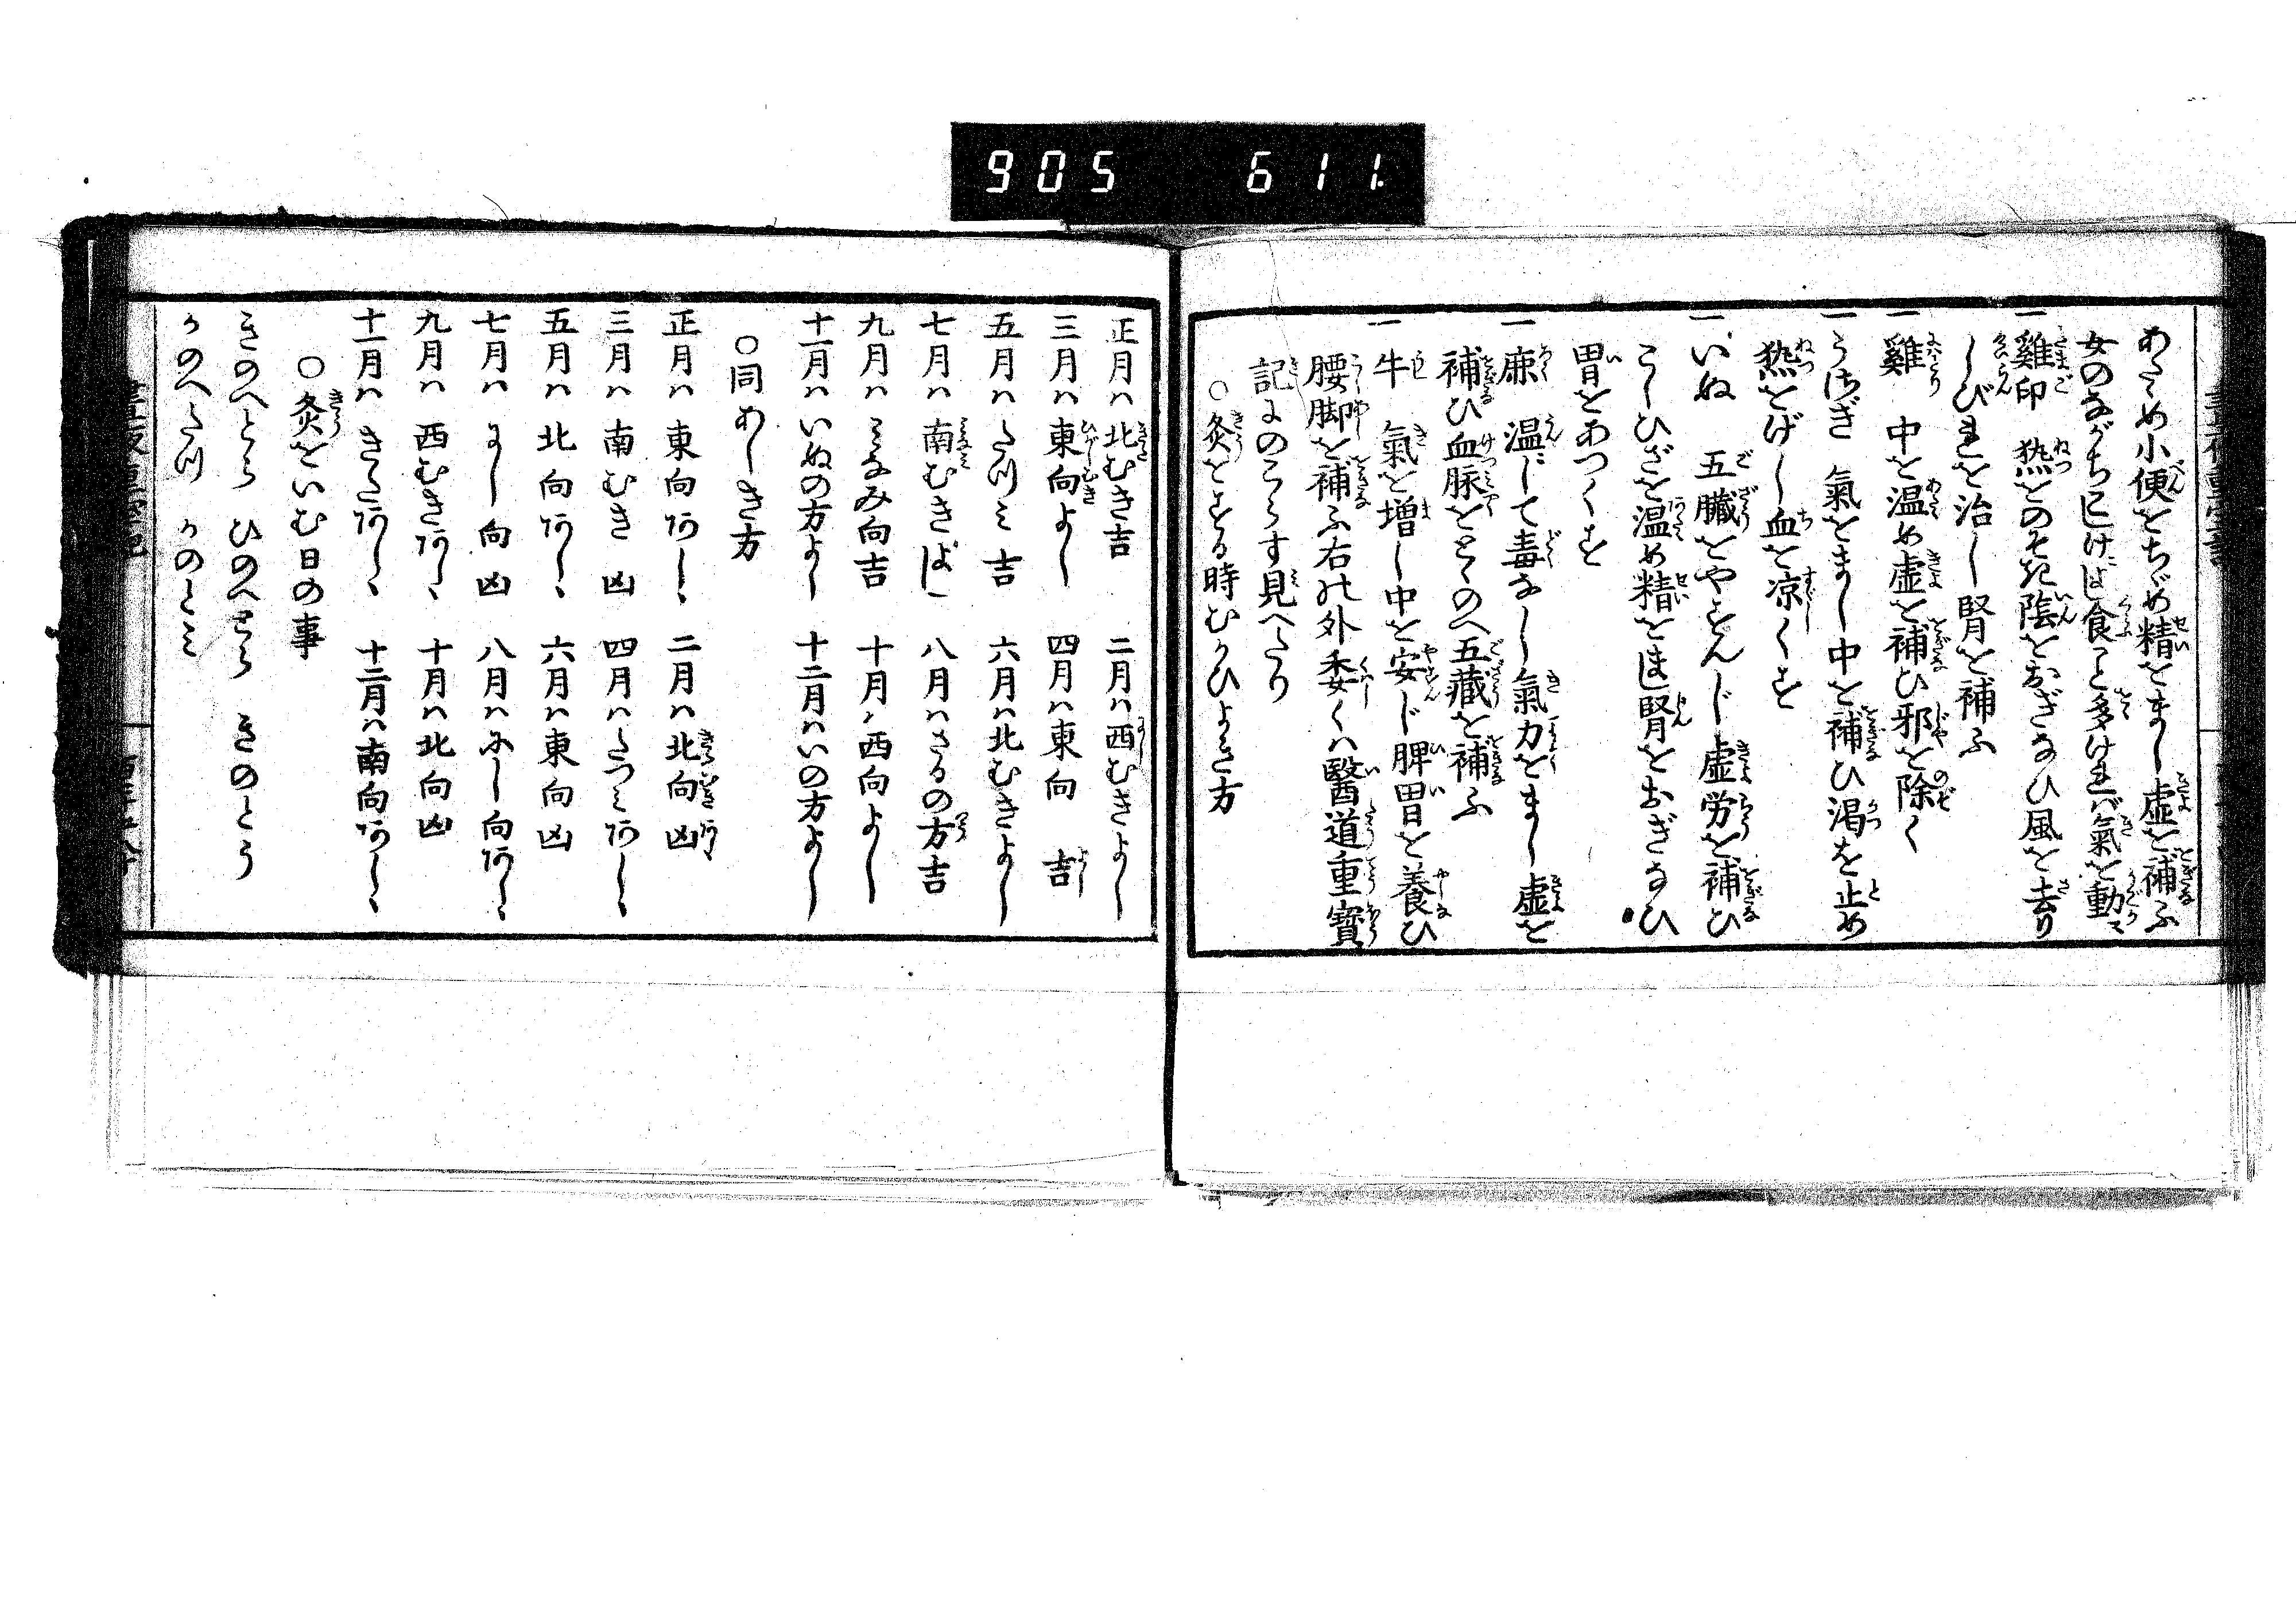 905 611.
あたゝめ小便をちゞめ精をまし虚を補ふ
女のながちにけには食こと多ければ氣を動ス
一雞卵 熱をのぞき陰をおぎなひ風を去り
しびれを治し腎を補ふ
一雞 中を温め虚を補ひ邪を除く
一うさぎ 氣をまし中を補ひ渇を止め
熱をげし血を凉くす
一いぬ 五臓をやすんじ虚労を補ひ
こしひざを温め精をまし腎をおぎなひ
胃をあつくす
一鹿 温にて毒なし氣力をまし虚を
補ひ血脉をとゝのへ五藏を補ふ
一牛 氣を増し中を安じ脾胃を養ひ
腰脚を補ふ右の外委くハ醫道重寳
記にのこらす見へたり
○灸をする時むかひよき方
正月ハ北むき吉 二月ハ西むきよし
三月ハ東向よし 四月ハ東向 吉
五月ハたつミ吉 六月ハ北むきよし
七月ハ南むきよし 八月ハさるの方吉
九月ハミなみ向吉 十月ハ西向よし
十一月ハいぬの方よし 十二月ハいの方よし
○同あしき方
正月ハ東向アしゝ 二月ハ北向凶
三月ハ南むき凶 四月ハたつミアしゝ
五月ハ北向アしゝ 六月ハ東向凶
七月ハにし向凶 八月ハにし向アしゝ
九月ハ西むきアしゝ 十月ハ北向凶
十一月ハきたアしゝ 十二月ハ南向アしゝ
○灸をいむ日の事
きのへとら ひのへとら きのとう
かのへたつ かのとミ